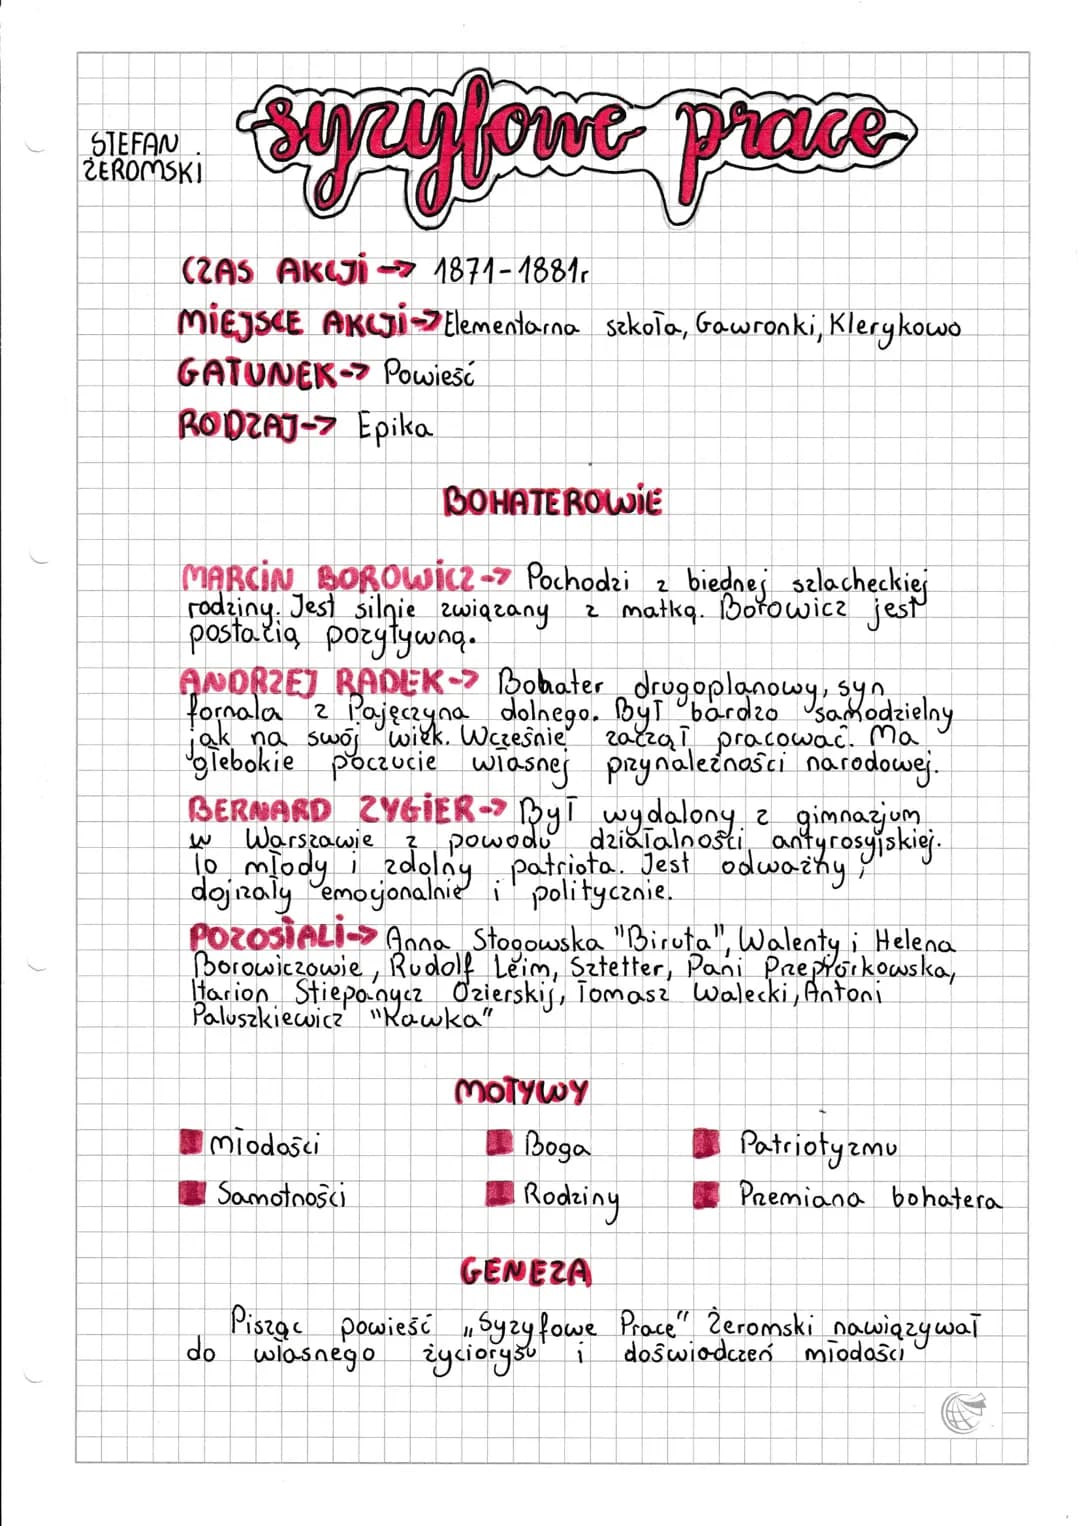 syzyfowe prace
STEFAN
ŻEROMSKI
CZAS AKCJI -> 1871-1881r
MIEJSCE AKCJI -> Elementarna szkoła, Gawronki, Klerykowo
GATUNEK -> Powieść
RODZAJ -> Epika
BOHATEROWIE
MARCIN BOROWICZ -> Pochodzi z biednej szlacheckiej
rodziny. Jest silnie związany z matką. Borowicz jest
postacią pozytywną.
ANDRZEJ RADEK -> Bohater drugoplanowy, syn
fornala z Pajęczyna dolnego. Był bardzo samodzielny
jak na swój wiek. Wcześnie zaczął pracować. Ma
głebokie poczucie własnej przynależności narodowej.
BERNARD ZYGIER -> Był wydalony z gimnazjum
w Warszawie z powodu działalności antyrosyjskiej.
To młody i zdolny patriota. Jest odważny,
dojrzały emocjonalnie i politycznie.
POZOSTALI -> Anna Stogowska "Biruta", Walenty i Helena
Borowiczowie, Rudolf Leim, Sztetter, Pani Przepiórkowska,
Ilarion Stiepanycz Ozierskij, Tomasz Walecki, Antoni
Paluszkiewicz "Kawka"
MOTYWY
młodości Boga Patriotyzmu
Samotności Rodziny Przemiana bohatera
GENEZA
Pisząc powieść „Syzyfowe Prace" Żeromski nawiązywał
do własnego życiorysu i doświadczeń młodości